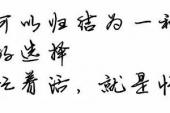 可以归结为一
的选择
忙着活，就是